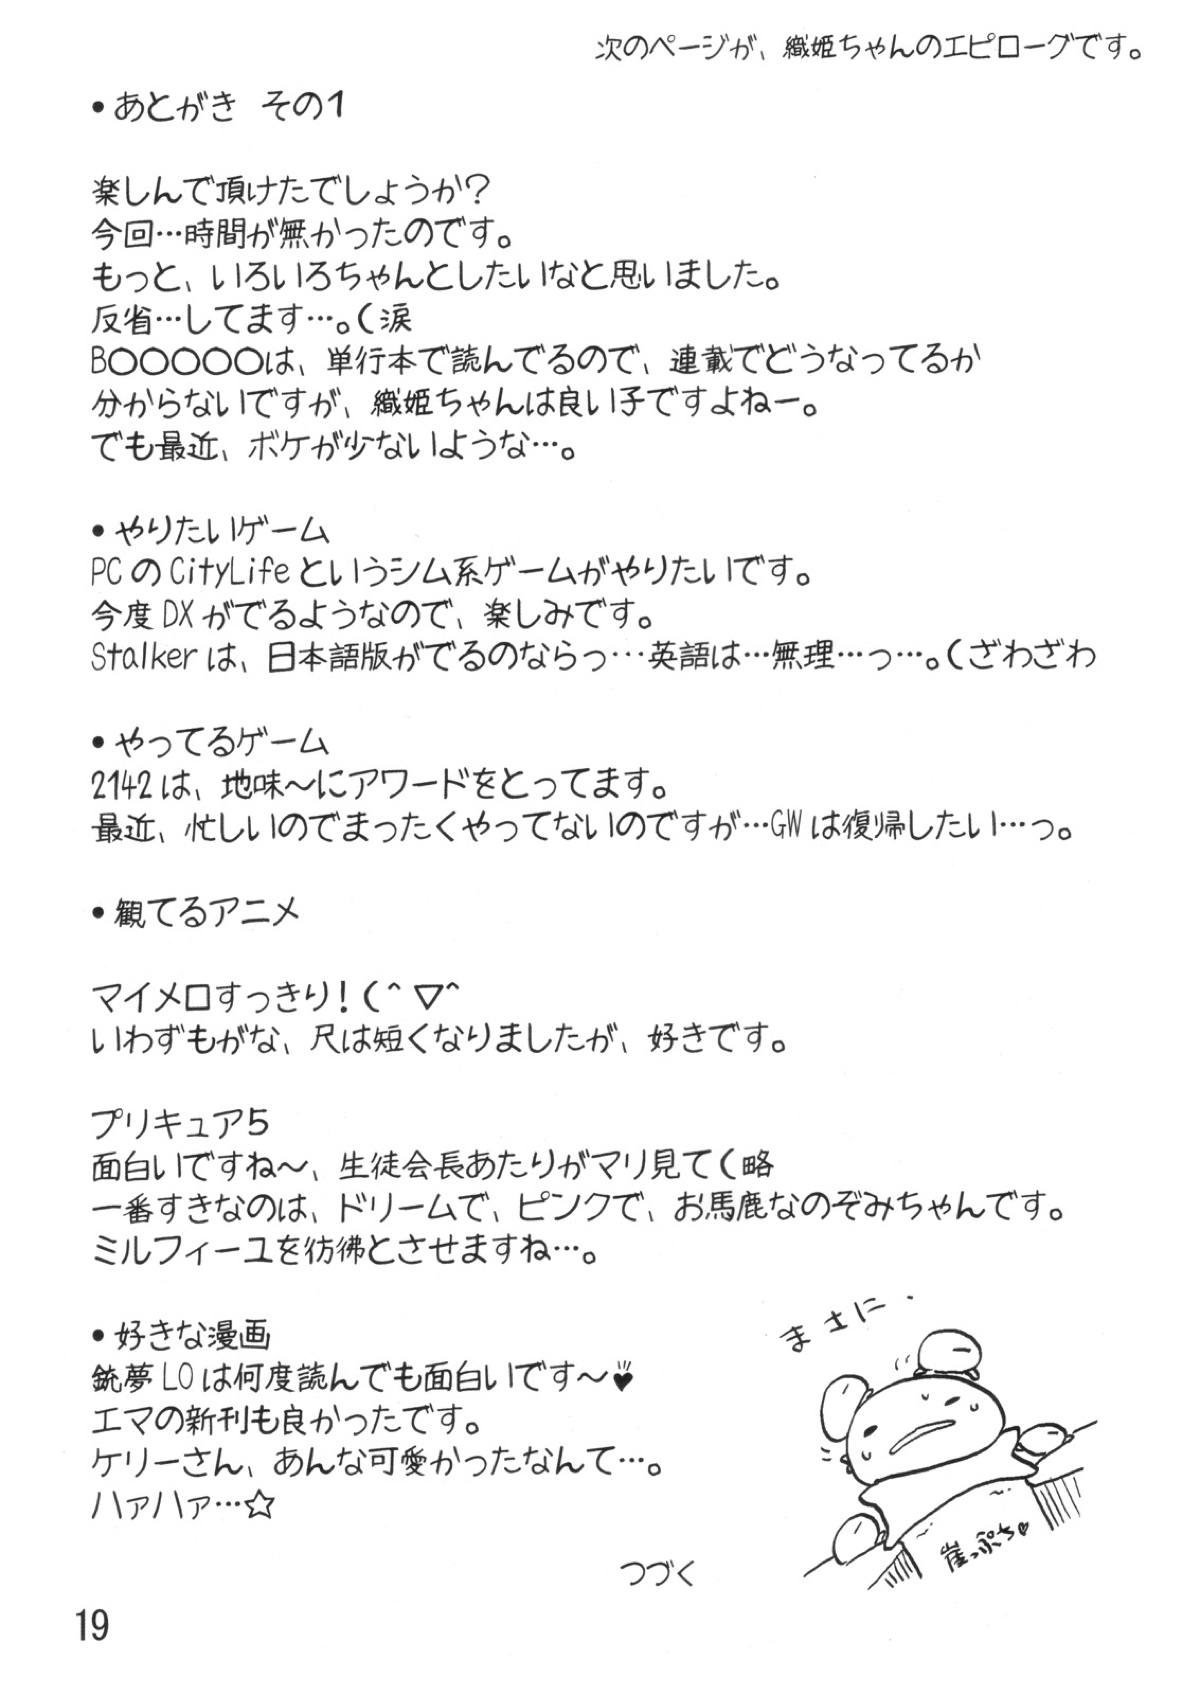 次のページが、織姫ちゃんのエピローグです。
•あとがき その1
楽しんで頂けたでしょうか?
今回…時間が無かったのです。
もっと、いろいろちゃんとしたいなと思いました。
反省…してます…。(涙
B○○○○○は、単行本で読んでるので、連載でどうなってるか
分からないですが、織姫ちゃんは良い子ですよねー。
でも最近、ボケが少ないような…。
•やりたいゲーム
PCのCityLifeというシム系ゲームがやりたいです。
今度DXがでるようなので、楽しみです。
Stalkerは、日本語版がでるのならっ…英語は…無理…っ…。(ざわざわ
•やってるゲーム
2142は、地味〜にアワードをとってます。
最近、忙しいのでまったくやってないのですが…GWは復帰したい…っ。
•観てるアニメ
マイメロすっきり!(^▽^
いわずもがな、尺は短くなりましたが、好きです。
プリキュア5
面白いですね〜、生徒会長あたりがマリ見て(略
一番すきなのは、ドリームで、ピンクで、お馬鹿なのぞみちゃんです。
ミルフィーユを彷彿とさせますね…。
•好きな漫画
銃夢LOは何度読んでも面白いです〜♥
エマの新刊も良かったです。
ケリーさん、あんな可愛かったなんて…。
ハァハァ…☆
まさに.
崖っぷち♡
つづく
19